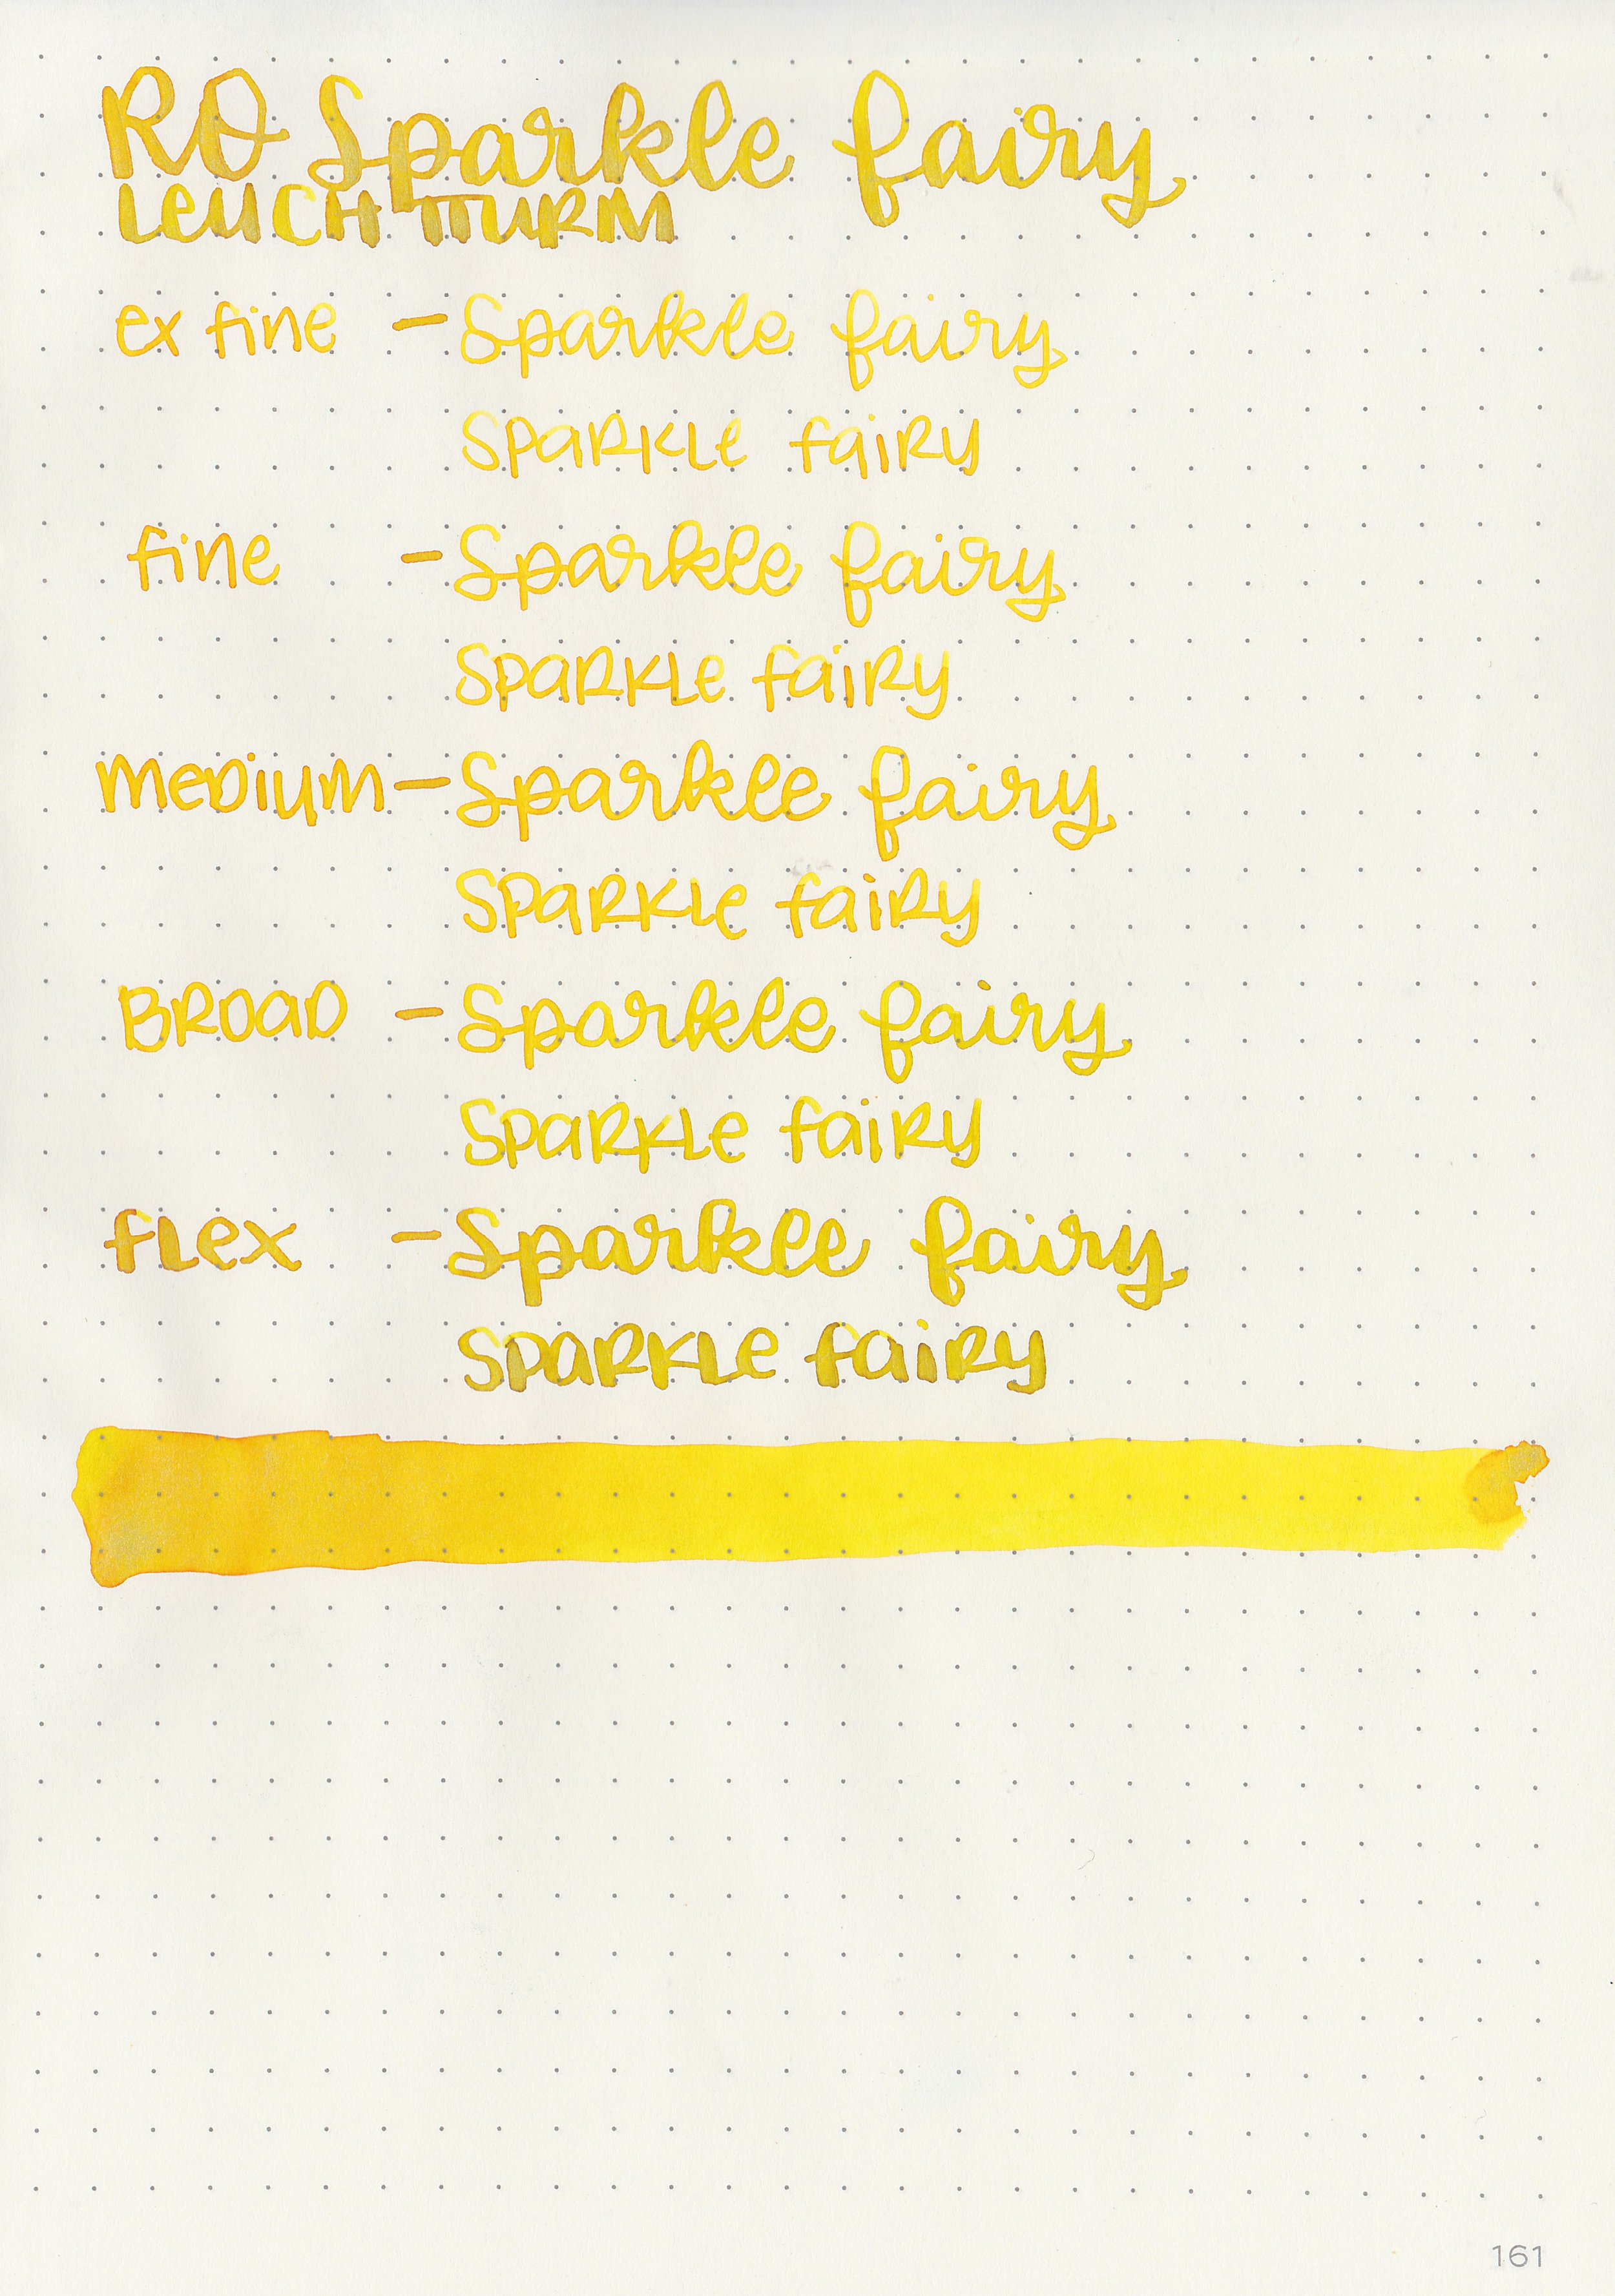 RO Sparkle fairy
LEUCHTTURM
ex fine - Sparkle fairy
SPARKLE fairy
fine - Sparkle fairy
SPARKLE fairy
MEDIUM - Sparkle fairy
SPARKLE fairy
BROAD - Sparkle fairy
SPARKLE fairy
FLEX - Sparkle fairy
SPARKLE fairy
161